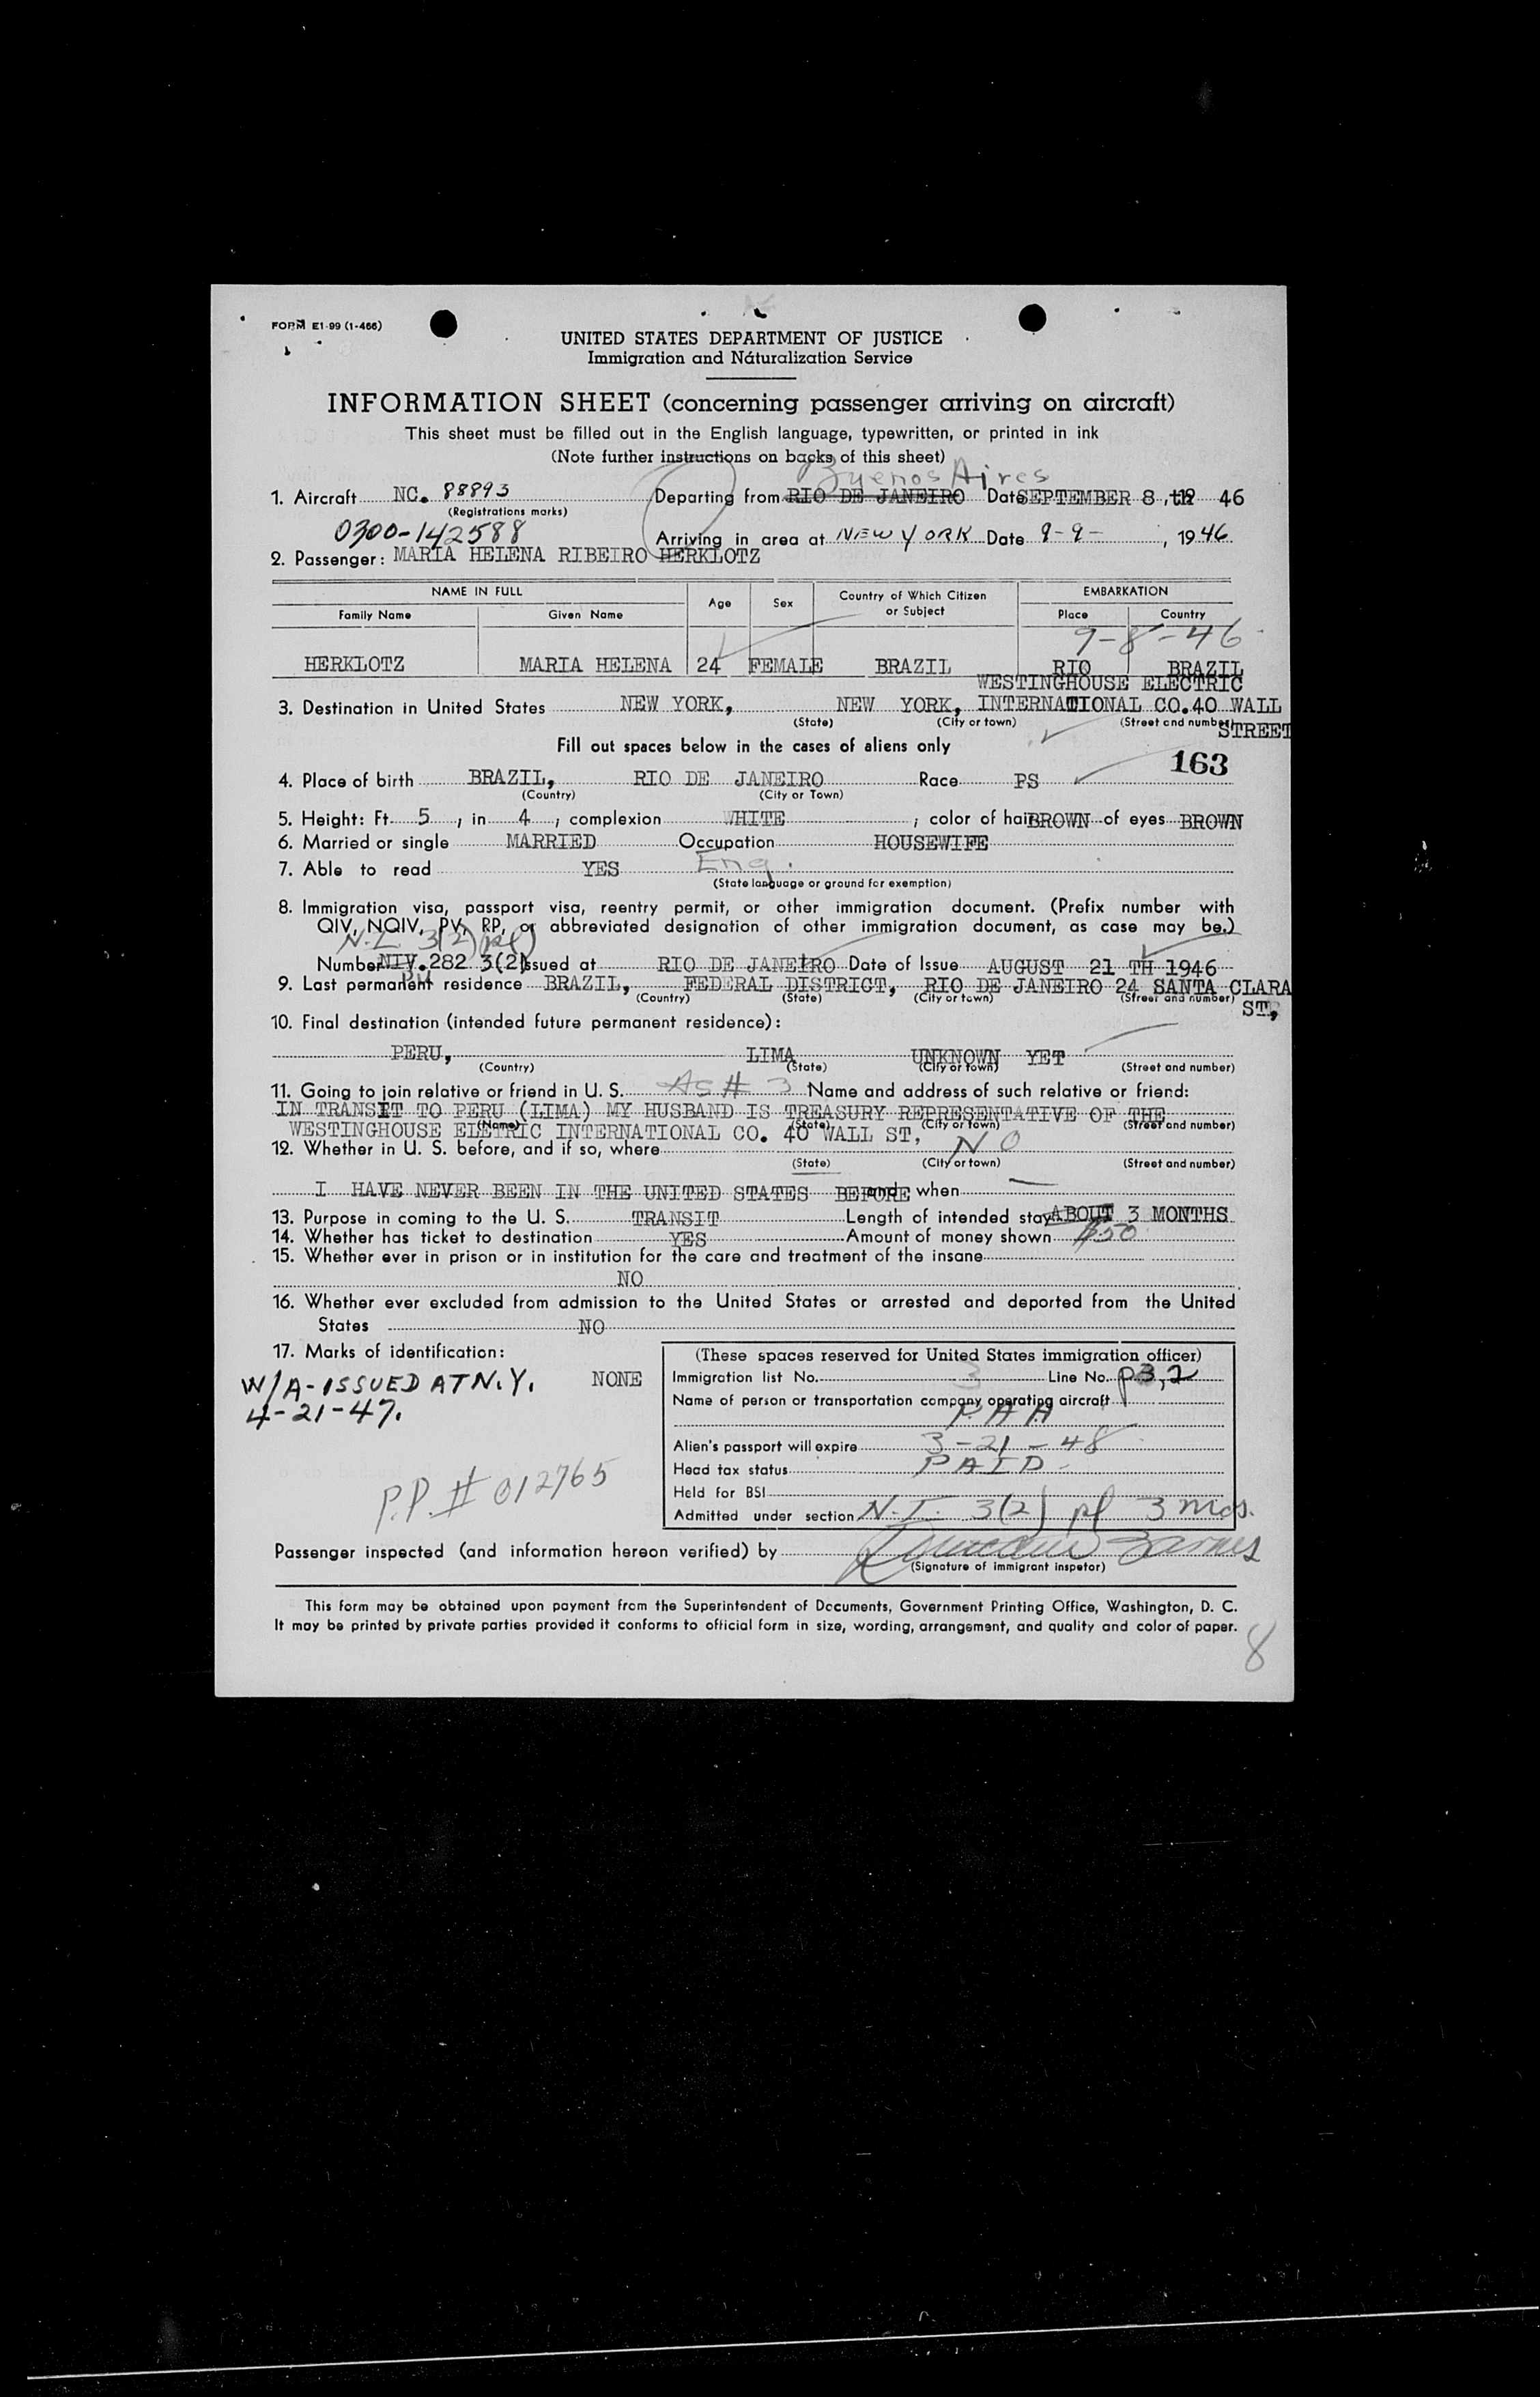 FORM E1-99 (1-466)
UNITED STATES DEPARTMENT OF JUSTICE
Immigration and Naturalization Service
INFORMATION SHEET (concerning passenger arriving on aircraft)
This sheet must be filled out in the English language, typewritten, or printed in ink
(Note further instructions on backs of this sheet)
Buenos Aires
1. Aircraft NC. 88893 Departing from RIO DE JANEIRO Date SEPTEMBER 8 ,th 46
(Registrations marks)
0300-142588 Arriving in area at NEW YORK Date 9-9- , 1946
2. Passenger: MARIA HELENA RIBEIRO HERKLOTZ
NAME IN FULL Age Sex Country of Which Citizen or Subject EMBARKATION
Family Name Given Name Place Country
9-8-46
HERKLOTZ MARIA HELENA 24 FEMALE BRAZIL RIO BRAZIL
WESTINGHOUSE ELECTRIC
3. Destination in United States NEW YORK, NEW YORK, INTERNATIONAL CO.40 WALL
(State) (City or town) (Street and number)
STREET
Fill out spaces below in the cases of aliens only
163
4. Place of birth BRAZIL, RIO DE JANEIRO Race PS
(Country) (City or Town)
5. Height: Ft. 5 , in 4 ; complexion WHITE ; color of hair BROWN of eyes BROWN
6. Married or single MARRIED Occupation HOUSEWIFE
7. Able to read YES Eng.
(State language or ground for exemption)
8. Immigration visa, passport visa, reentry permit, or other immigration document. (Prefix number with
QIV, NQIV, PV, RP, or abbreviated designation of other immigration document, as case may be.)
3(2)
Number NIV.282 3(2) Issued at RIO DE JANEIRO Date of Issue AUGUST 21 TH 1946
9. Last permanent residence BRAZIL, FEDERAL DISTRICT, RIO DE JANEIRO 24 SANTA CLARA
(Country) (State) (City or town) (Street and number)
ST,
10. Final destination (intended future permanent residence):
PERU, LIMA UNKNOWN YET
(Country) (State) (City or town) (Street and number)
11. Going to join relative or friend in U. S. As # 3 Name and address of such relative or friend:
IN TRANSIT TO PERU (LIMA) MY HUSBAND IS TREASURY REPRESENTATIVE OF THE
(Name) (State) (City or town) (Street and number)
WESTINGHOUSE ELETRIC INTERNATIONAL CO. 40 WALL ST,
12. Whether in U. S. before, and if so, where NO
(State) (City or town) (Street and number)
I HAVE NEVER BEEN IN THE UNITED STATES BEFORE and when
13. Purpose in coming to the U. S. TRANSIT Length of intended stay ABOUT 3 MONTHS
14. Whether has ticket to destination YES Amount of money shown $50
15. Whether ever in prison or in institution for the care and treatment of the insane
NO
16. Whether ever excluded from admission to the United States or arrested and deported from the United
States NO
17. Marks of identification:
NONE
W/A-ISSUED AT N.Y.
4-21-47.
P.P. # 012765
(These spaces reserved for United States immigration officer)
Immigration list No. 3 Line No. p3,2
Name of person or transportation company operating aircraft
PAA
Alien's passport will expire 3-21-48
Head tax status PAID
Held for BSI
Admitted under section 3(2) pl 3 mos.
Passenger inspected (and information hereon verified) by
(Signature of immigrant inspetor)
This form may be obtained upon payment from the Superintendent of Documents, Government Printing Office, Washington, D. C.
It may be printed by private parties provided it conforms to official form in size, wording, arrangement, and quality and color of paper.
8